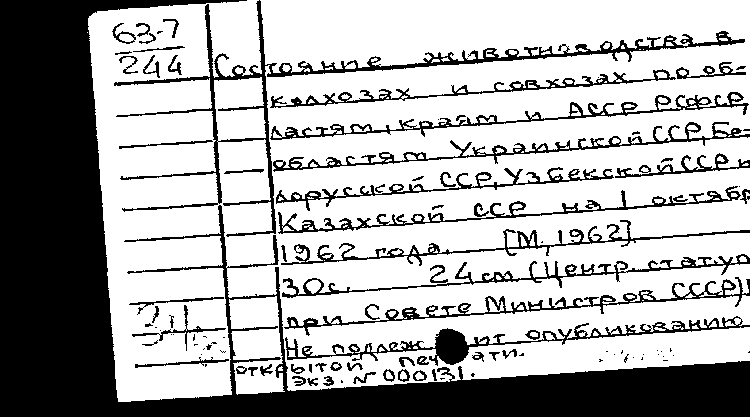 63-7
244
Состояние животноводства в
колхозах и совхозах по об-
ластям, краям и АССР РСФСР,
областям Украинской ССР, Бе-
лорусской ССР, Узбекской ССР и
Казахской ССР на 1 октябр
1962 года. [М., 1962].
30с. 24см (Центр. стат. уп
при Совете Министров СССР)
34
Не подлеж ит опубликованию
открытой печ ати.
Экз. № 000131.